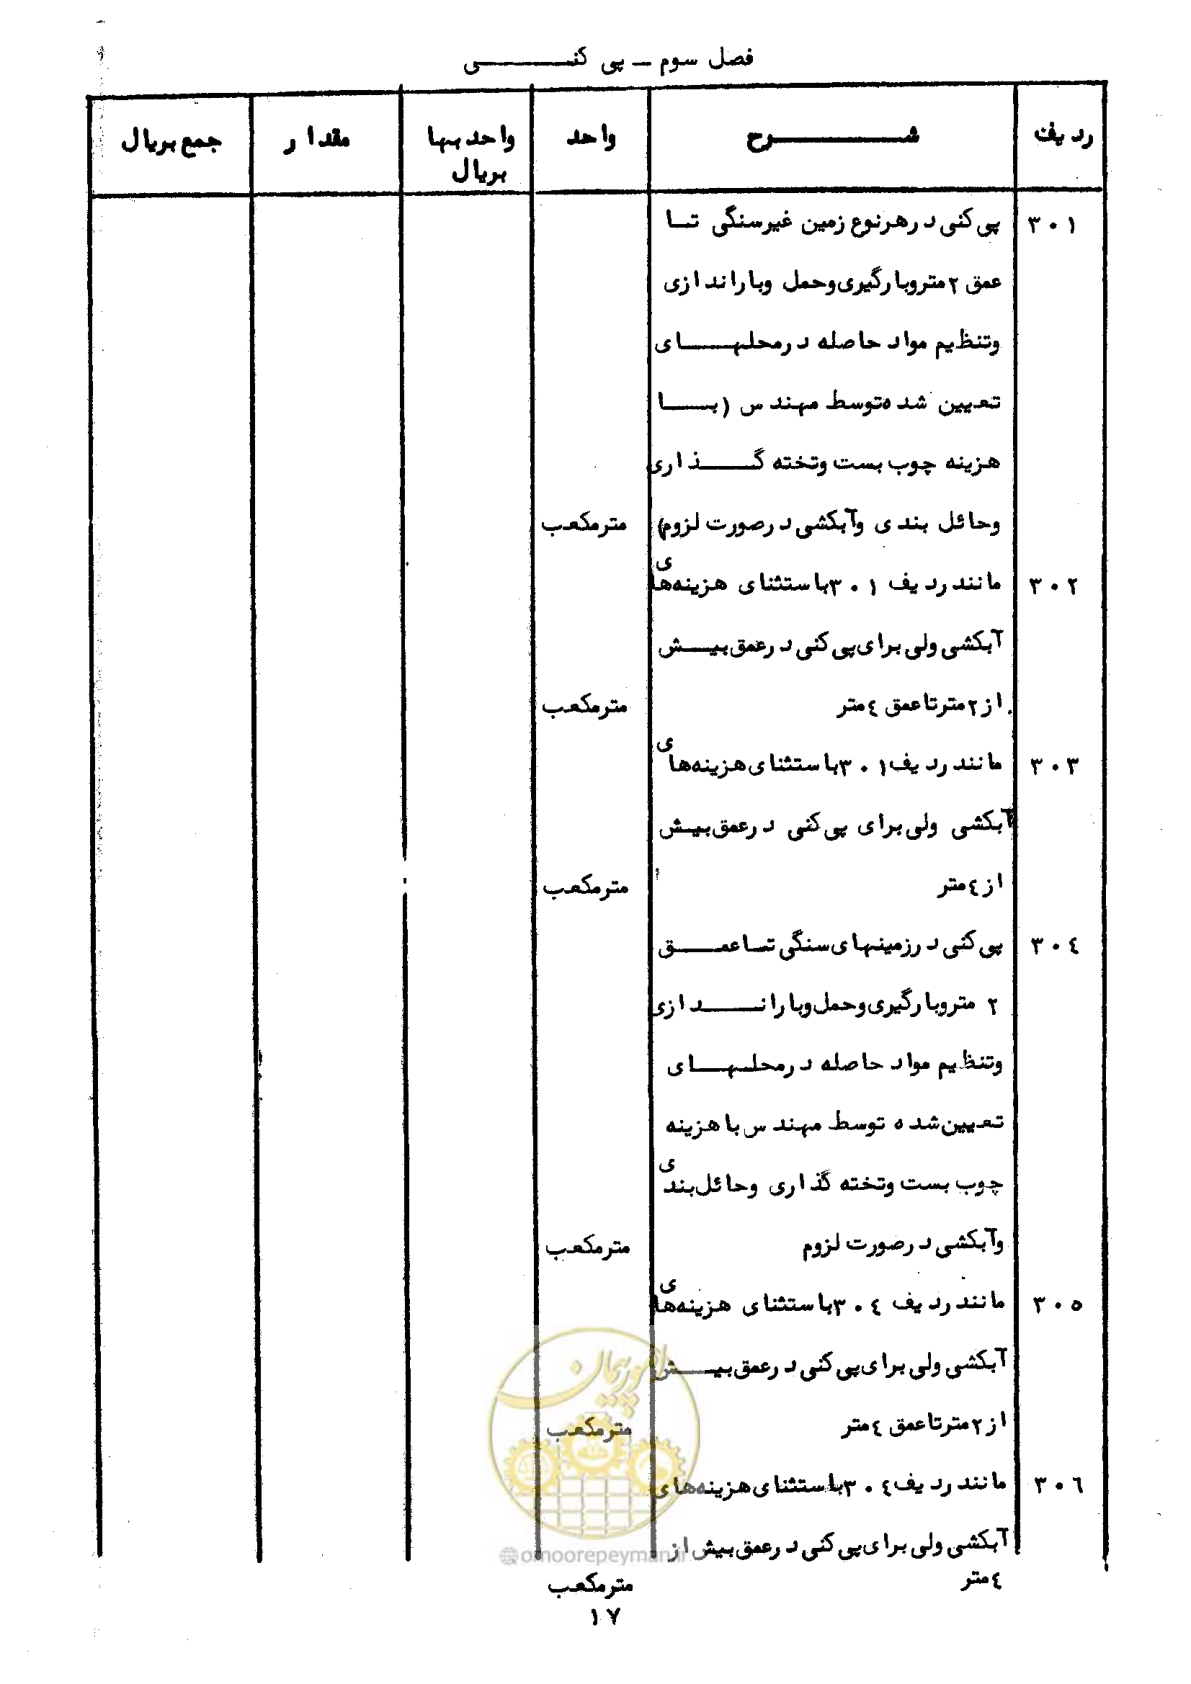 فصل سوم – پی کنی
ردیف شرح واحد واحدبها بریال مقدار جمع بریال
۳۰۱ پی کنی در هر نوع زمین غیرسنگی تا
عمق ۲ متر و بارگیری و حمل و باراندازی
و تنظیم مواد حاصله در محلهای
تعیین شده توسط مهندس (با
هزینه چوب بست و تخته گذاری
و حائل بندی و آبکشی در صورت لزوم) مترمکعب
۳۰۲ مانند ردیف ۳۰۱ باستثنای هزینه‌های
آبکشی ولی برای پی کنی در عمق بیش
از ۲ متر تا عمق ۴ متر مترمکعب
۳۰۳ مانند ردیف ۳۰۱ باستثنای هزینه‌های
آبکشی ولی برای پی کنی در عمق بیش
از ۴ متر مترمکعب
۳۰۴ پی کنی در زمینهای سنگی تا عمق
۲ متر و بارگیری و حمل و باراندازی
و تنظیم مواد حاصله در محلهای
تعیین شده توسط مهندس با هزینه
چوب بست و تخته گذاری و حائل بندی
و آبکشی در صورت لزوم مترمکعب
۳۰۵ مانند ردیف ۳۰۴ باستثنای هزینه‌های
آبکشی ولی برای پی کنی در عمق بیش
از ۲ متر تا عمق ۴ متر مترمکعب
۳۰۶ مانند ردیف ۳۰۴ باستثنای هزینه‌های
آبکشی ولی برای پی کنی در عمق بیش از
۴ متر مترمکعب
۱۷
امور پیمان
@omoorepeyman.ir